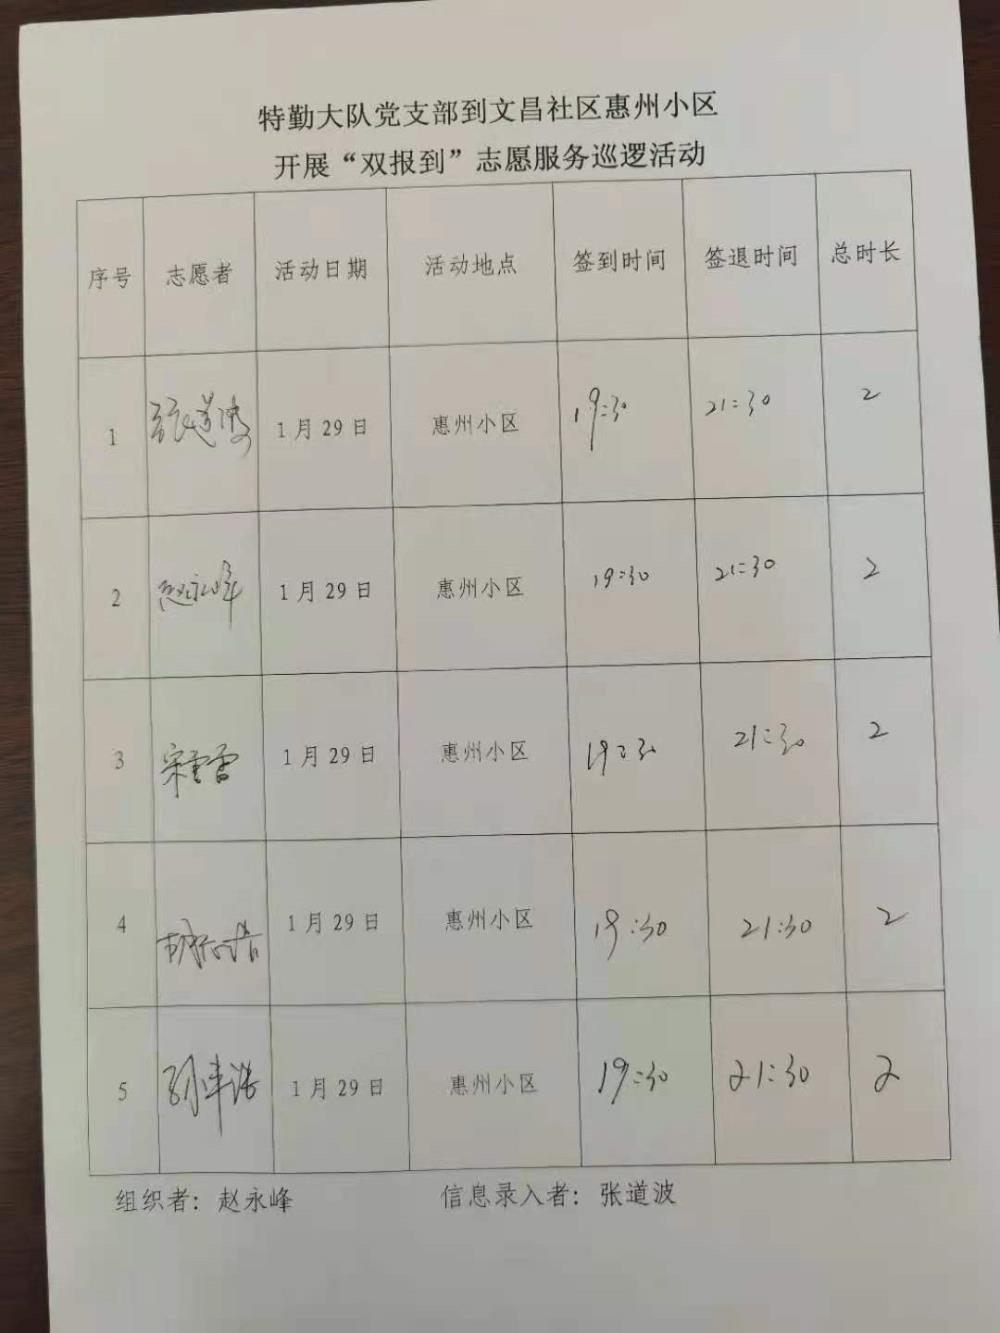 特勤大队党支部到文昌社区惠州小区
开展“双报到”志愿服务巡逻活动
序号 志愿者 活动日期 活动地点 签到时间 签退时间 总时长
1 张道波 1月29日 惠州小区 19:30 21:30 2
2 赵永峰 1月29日 惠州小区 19:30 21:30 2
3 宋雪雷 1月29日 惠州小区 19:30 21:30 2
4 1月29日 惠州小区 19:30 21:30 2
5 1月29日 惠州小区 19:30 21:30 2
组织者：赵永峰 信息录入者：张道波